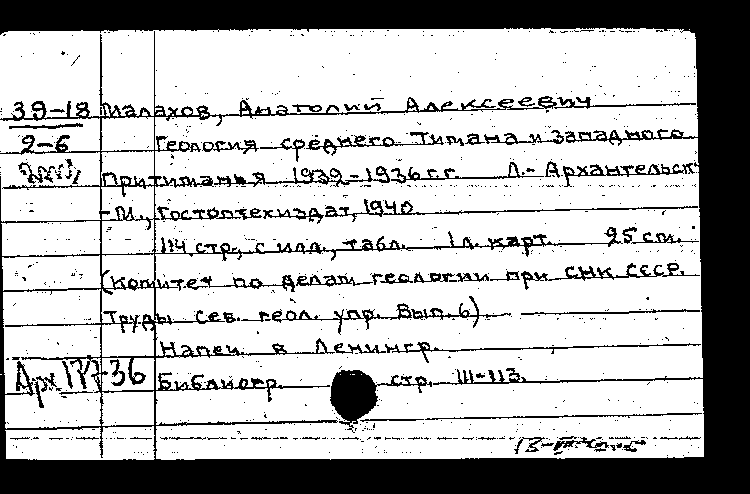 39-18 Малахов, Анатолий Алексеевич
2-6 Геология среднего Тимана и западного
Притиманья 1932-1936 г.г. Л.- Архангельск
-М., Гостоптехиздат, 1940.
114 стр., с илл., табл. 1 л. карт. 25 см.
(Комитет по делам геологии при СНК СССР.
Труды Сев. геол. упр. Вып. 6)
Напеч. в Ленингр.
Арх 36
Библиогр. стр. 111-113.